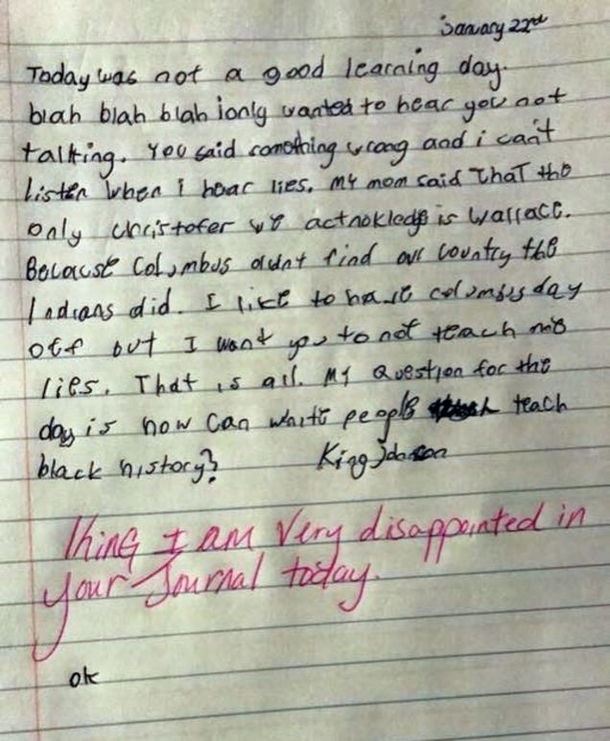 January 22nd
Today was not a good learning day.
blah blah blah ionly wanted to hear you not
talking. You said something wrong and i can't
listen when i hear lies. My mom said that the
only christofer we acknoledge is wallace.
Because Columbus didnt find our country the
Indians did. I like to have columbus day
off but I want you to not teach me
lies. That is all. My question for the
day is how can white people teach
black history? King Johnson
King I am Very disappointed in
your Journal today.
ok